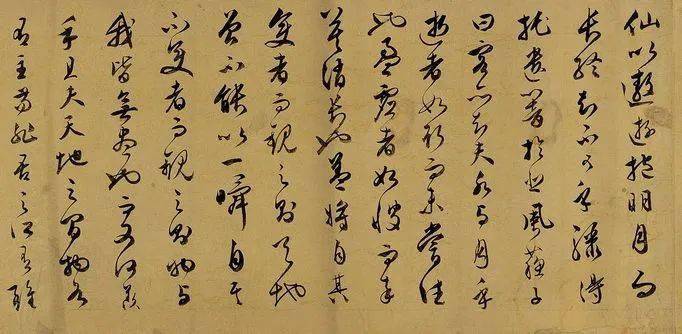 仙以遨遊抱明月而
長終知不可乎驟得
托遺響於悲風蘇子
曰客亦知夫水与月乎
逝者如斯而未嘗往
也盈虛者如彼而卒
莫消長也蓋將自其
變者而觀之則天地
曾不能以一瞬自其
不變者而觀之則物与
我皆無盡也而又何羨
乎且夫天地之間物各
有主苟非吾之所有雖